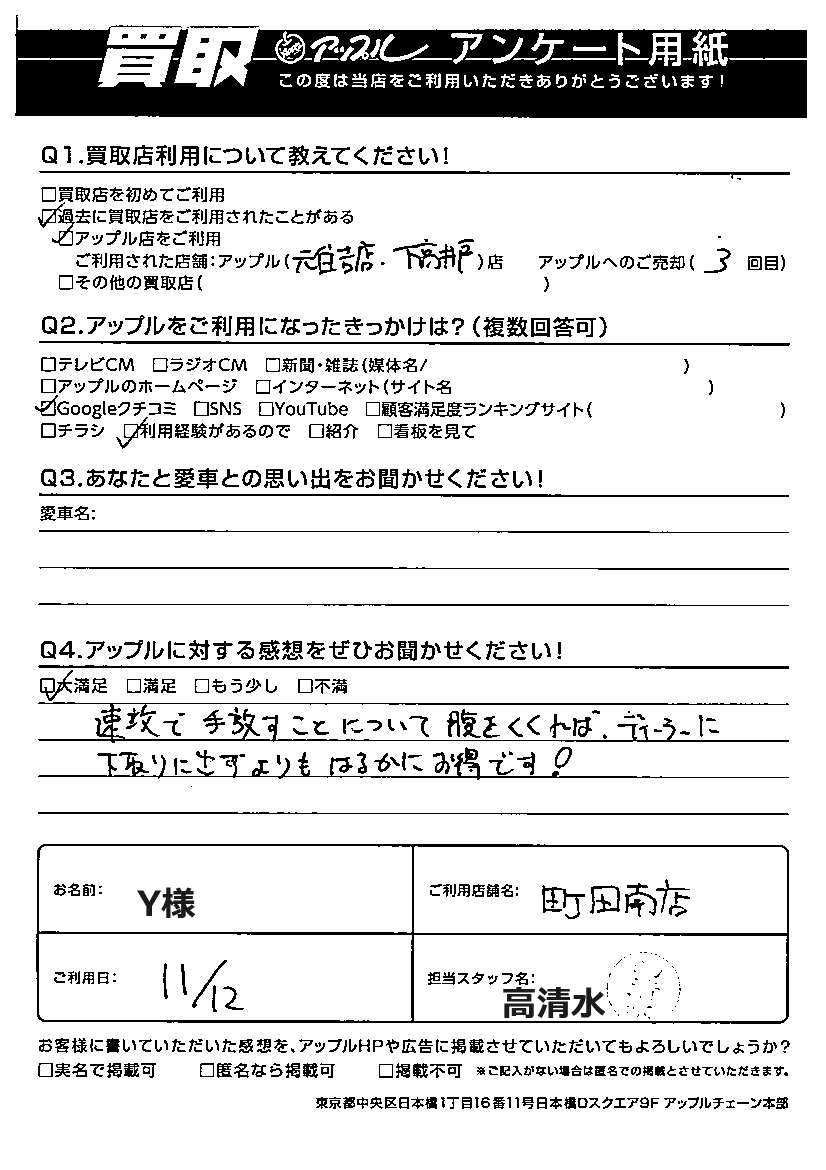 買取 アップル アンケート用紙
この度は当店をご利用いただきありがとうございます!
Q1.買取店利用について教えてください!
□買取店を初めてご利用
☑過去に買取店をご利用されたことがある
☑アップル店をご利用
ご利用された店舗:アップル(元住吉店・下高井戸)店 アップルへのご売却( 3 回目)
□その他の買取店( )
Q2.アップルをご利用になったきっかけは?(複数回答可)
□テレビCM □ラジオCM □新聞・雑誌(媒体名/ )
□アップルのホームページ □インターネット(サイト名 )
☑Googleクチコミ □SNS □YouTube □顧客満足度ランキングサイト( )
□チラシ ☑利用経験があるので □紹介 □看板を見て
Q3.あなたと愛車との思い出をお聞かせください!
愛車名:
Q4.アップルに対する感想をぜひお聞かせください!
☑大満足 □満足 □もう少し □不満
速攻で手放すことについて腹をくくれば、ディーラーに
下取りに出すよりもはるかにお得です!
お名前: Y様
ご利用店舗名: 町田南店
ご利用日: 11/12
担当スタッフ名: 高清水
お客様に書いていただいた感想を、アップルHPや広告に掲載させていただいてもよろしいでしょうか?
□実名で掲載可 □匿名なら掲載可 □掲載不可 ※ご記入がない場合は匿名での掲載とさせていただきます。
東京都中央区日本橋1丁目16番11号日本橋Dスクエア9F アップルチェーン本部